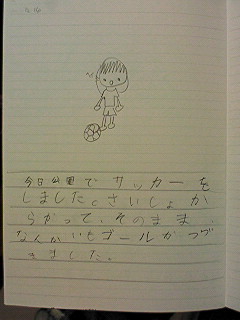 今日公園でサッカーを
しました。さいしょか
らかって、そのまま
なんかいもゴールがつづ
きました。